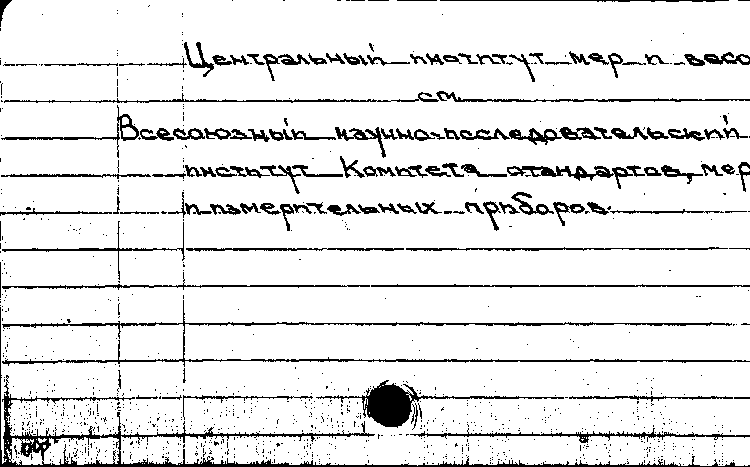 Центральный институт мер и весо
см.
Всесоюзный научно-исследовательский
институт Комитета стандартов, мер
и измерительных приборов.